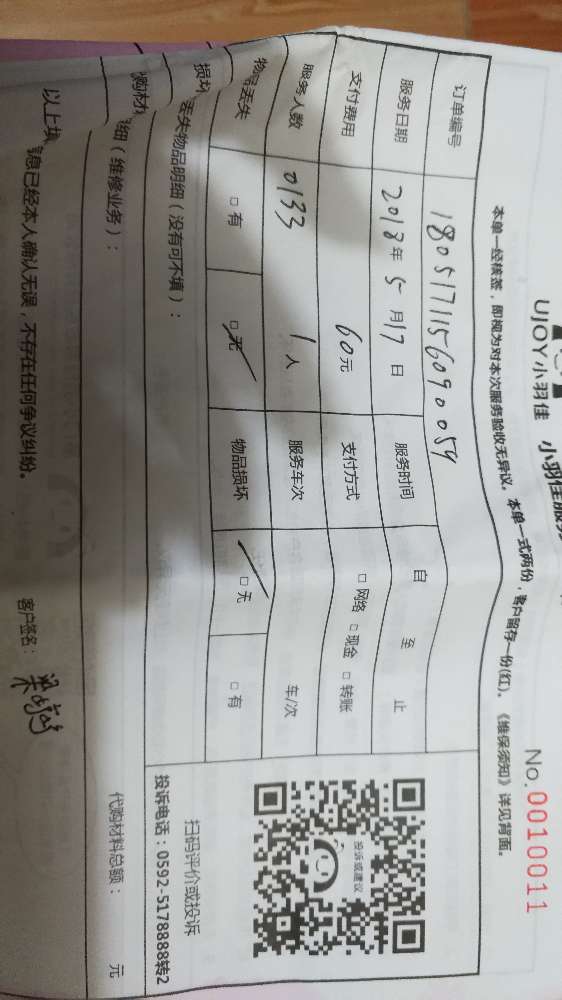 UJOY小羽佳 小羽佳服务
No.0010011
本单一经核签，即视为对本次服务验收无异议。本单一式两份，客户留存一份(红)。《维保须知》详见背面。
订单编号 1805171156090059
服务日期 2018年5月17日 服务时间 自 至 止
支付费用 60元 支付方式 □网络 □现金 □转账
服务人数 0133 1人 服务车次 车/次
物品丢失 □有 □无 物品损坏 □无 □有
损坏 丢失物品明细（没有可不填）：
购材 细（维修业务）： 代购材料总额： 元
以上填 息已经本人确认无误，不存在任何争议纠纷。 客户签名：
投诉或建议
扫码评价或投诉
投诉电话：0592-5178888转2